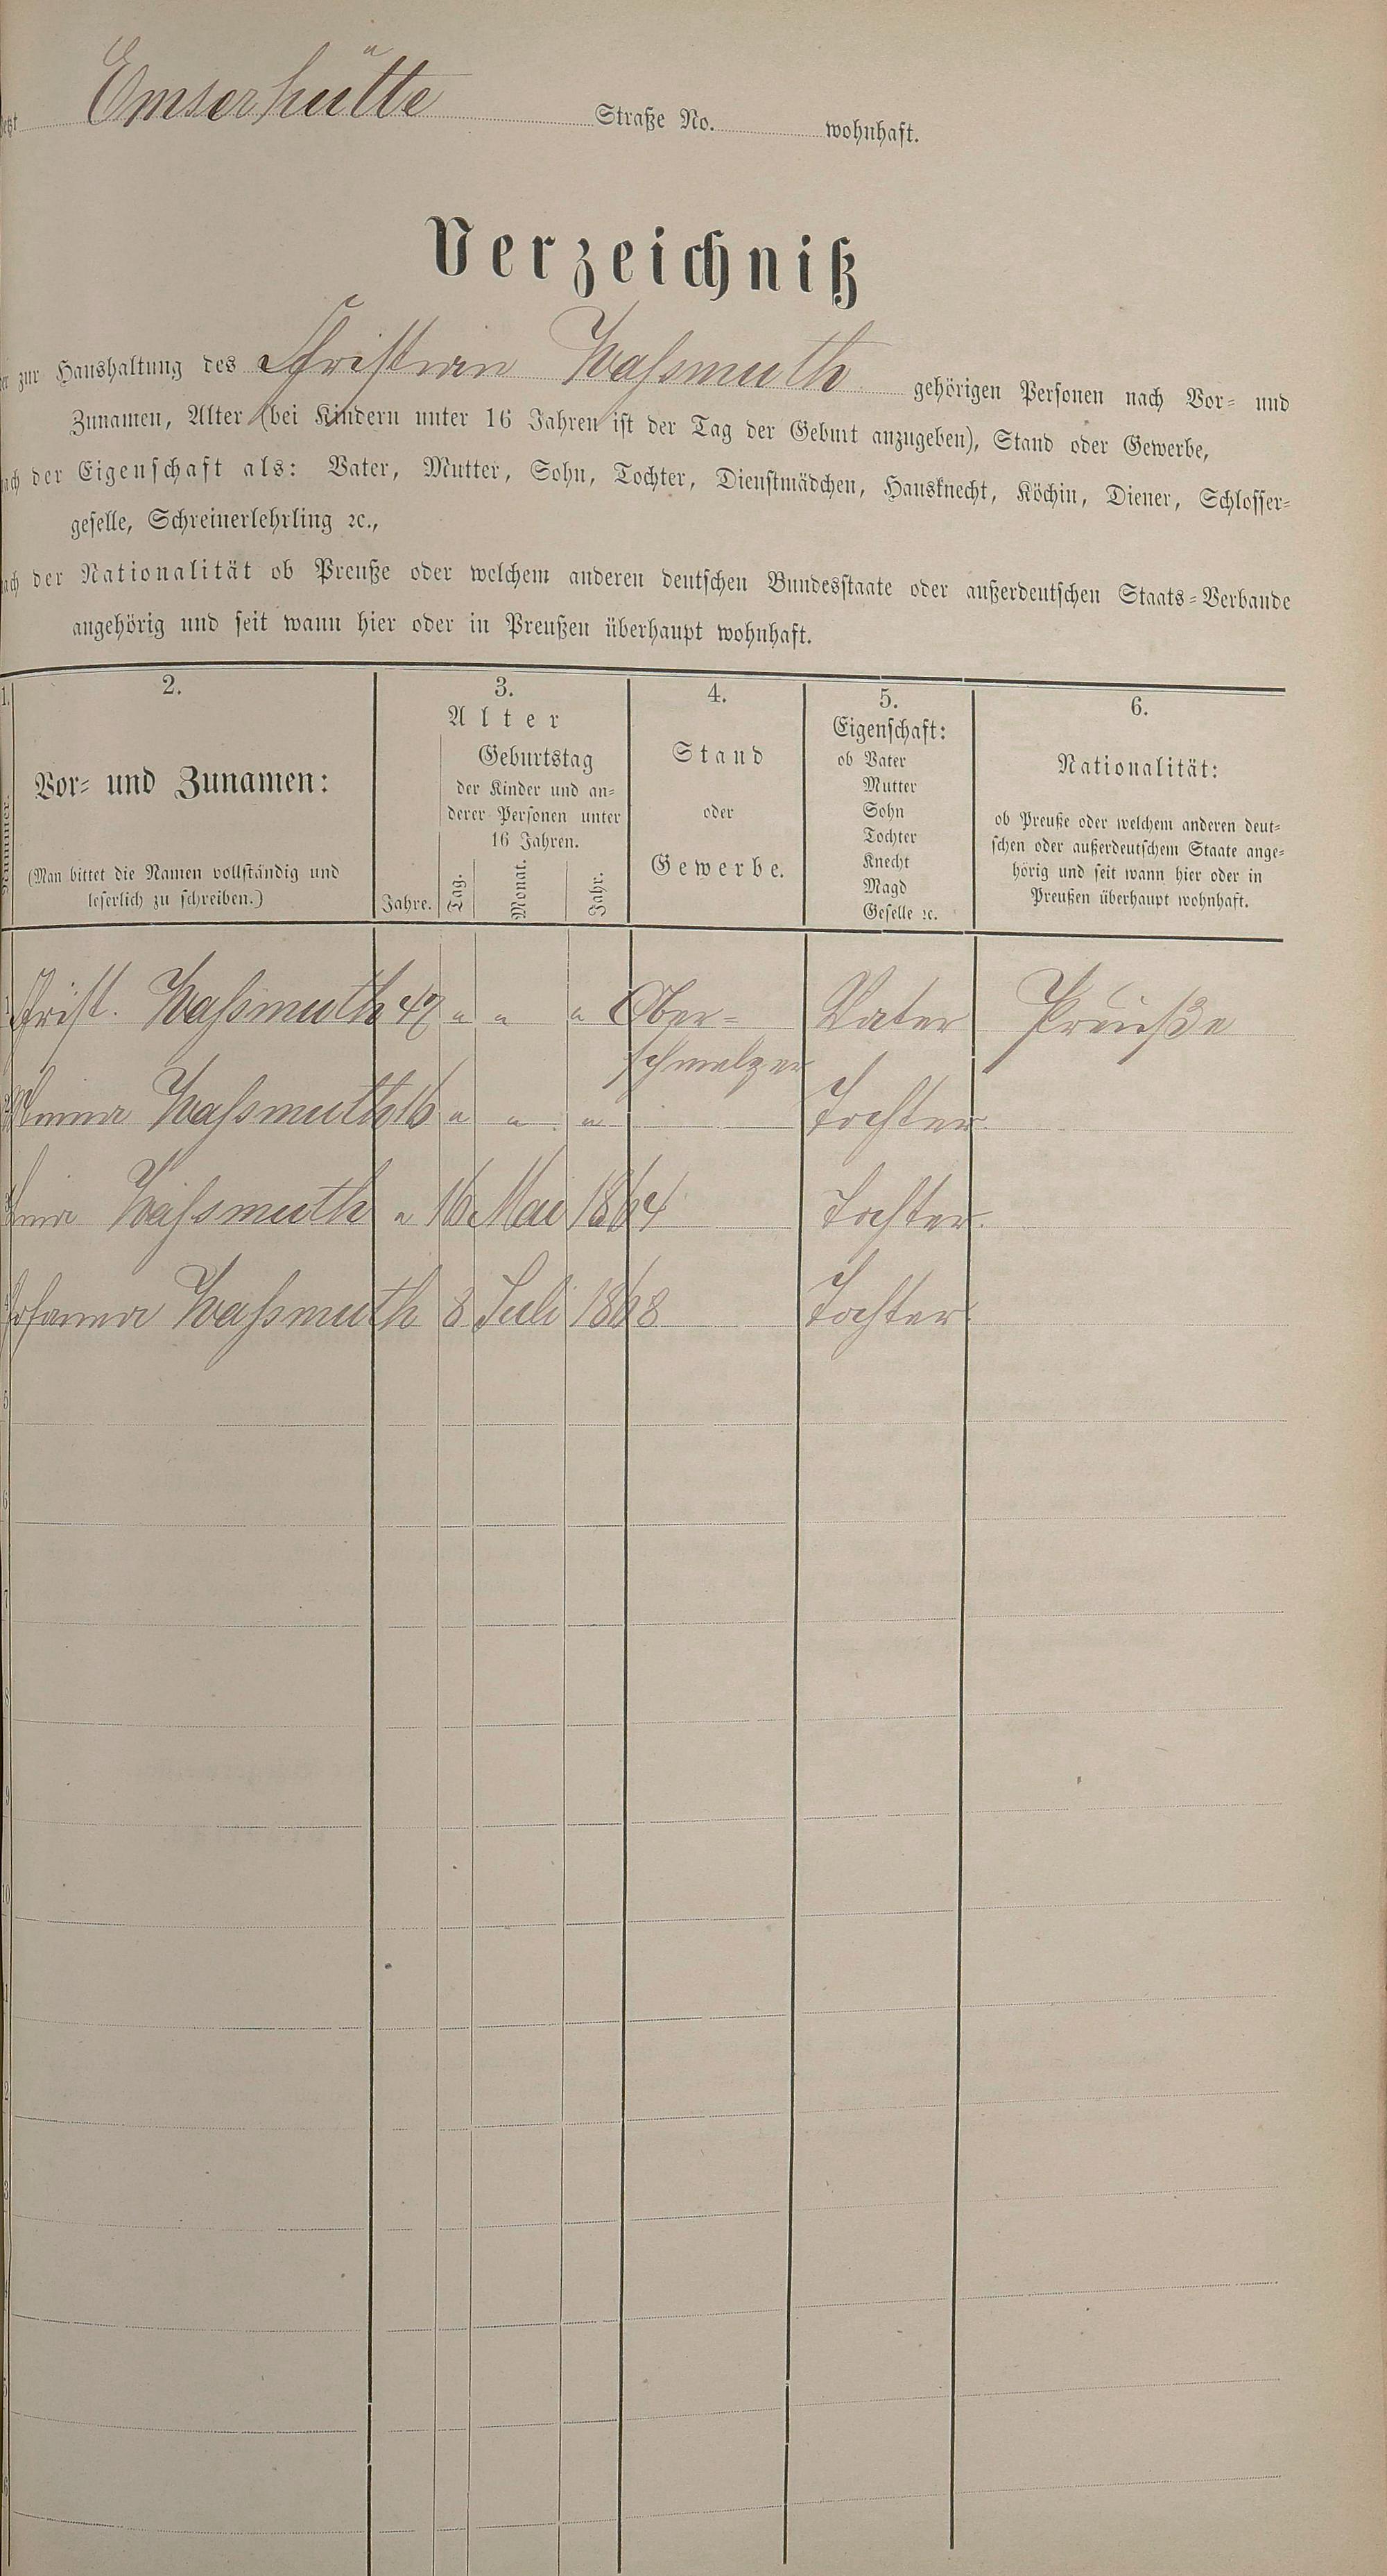 Emserhütte Straße No. wohnhaft.
Verzeichniß
zur Haushaltung des Christian Waßmuth gehörigen Personen nach Vor- und
Zunamen, Alter (bei Kindern unter 16 Jahren ist der Tag der Geburt anzugeben), Stand oder Gewerbe,
nach der Eigenschaft als: Vater, Mutter, Sohn, Tochter, Dienstmädchen, Hausknecht, Köchin, Diener, Schlosser-
geselle, Schreinerlehrling ꝛc.,
nach der Nationalität ob Preuße oder welchem anderen deutschen Bundesstaate oder außerdeutschen Staats-Verbande
angehörig und seit wann hier oder in Preußen überhaupt wohnhaft.
1.
Nummer.
2.
Vor- und Zunamen:
(Man bittet die Namen vollständig und
leserlich zu schreiben.)
3.
Alter
Geburtstag
der Kinder und an-
derer Personen unter
16 Jahren.
Jahre. Tag. Monat. Jahr.
4.
Stand
oder
Gewerbe.
5.
Eigenschaft:
ob Vater
Mutter
Sohn
Tochter
Knecht
Magd
Geselle ꝛc.
6.
Nationalität:
ob Preuße oder welchem anderen deut-
schen oder außerdeutschem Staate ange-
hörig und seit wann hier oder in
Preußen überhaupt wohnhaft.
1 Christ. Waßmuth 47 " " " Ober- Vater Preuße
schmelzer
2 Waßmuth 16 " " " Tochter
3 Waßmuth " 16 Mai 1864 Tochter.
4 Johanna Waßmuth 8 Juli 1868 Tochter.
5
6
7
8
9
10
1
2
3
4
5
6